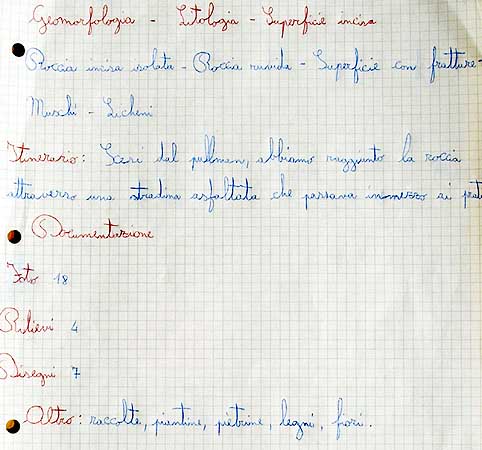 Geomorfologia - Litologia - Superficie incisa
Roccia incisa isolata - Roccia ruvida - Superficie con fratture -
Muschi - Licheni
Itinerario: Scesi dal pullman, abbiamo raggiunto la roccia
attraverso una stradina asfaltata che passava in mezzo ai prati
Documentazione
Foto 18
Rilievi 4
Disegni 7
Altro: raccolte, piantine, pietrine, legni, fiori.